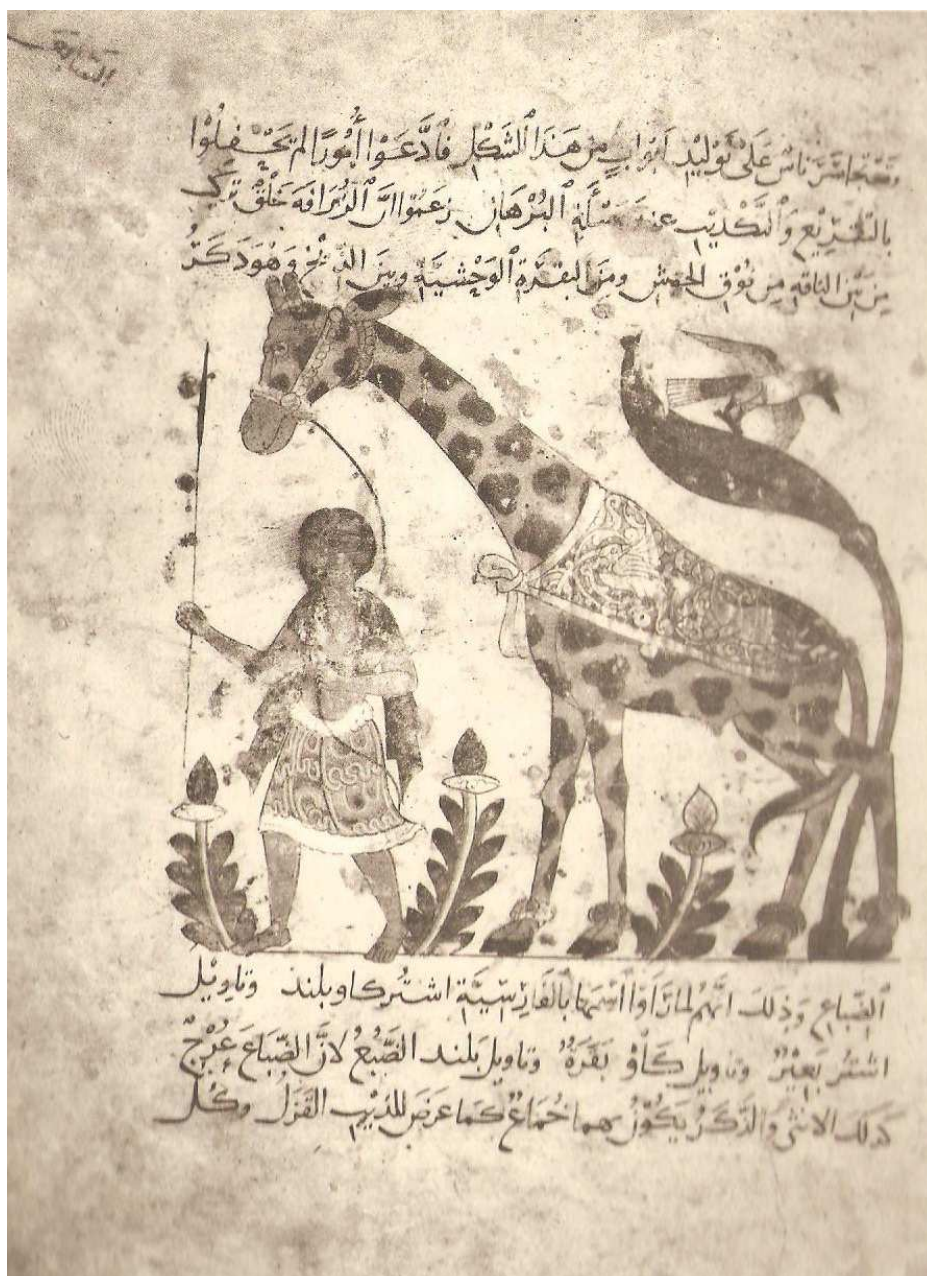 وتجاسر ناس على توليد ابواب من هذا الشكل فادعوا أمورا لم يحفلوا
بالتقريع والتكذيب عند مسئلة البرهان زعموا ان الزرافة خلق تركب
من بين الناقة من نوق الحبش ومن البقرة الوحشية وبين الذيخ وهو ذكر
الضباع وذلك انهم لما رأوا اسمها بالفارسية اشتر كاو بلند وتاويل
اشتر بعير وتاويل كاو بقرة وتاويل بلند الضبع لان الضباع عرج
كذلك الانثى والذكر يكون بهما خماع كما عرض للذيب القزل وكل